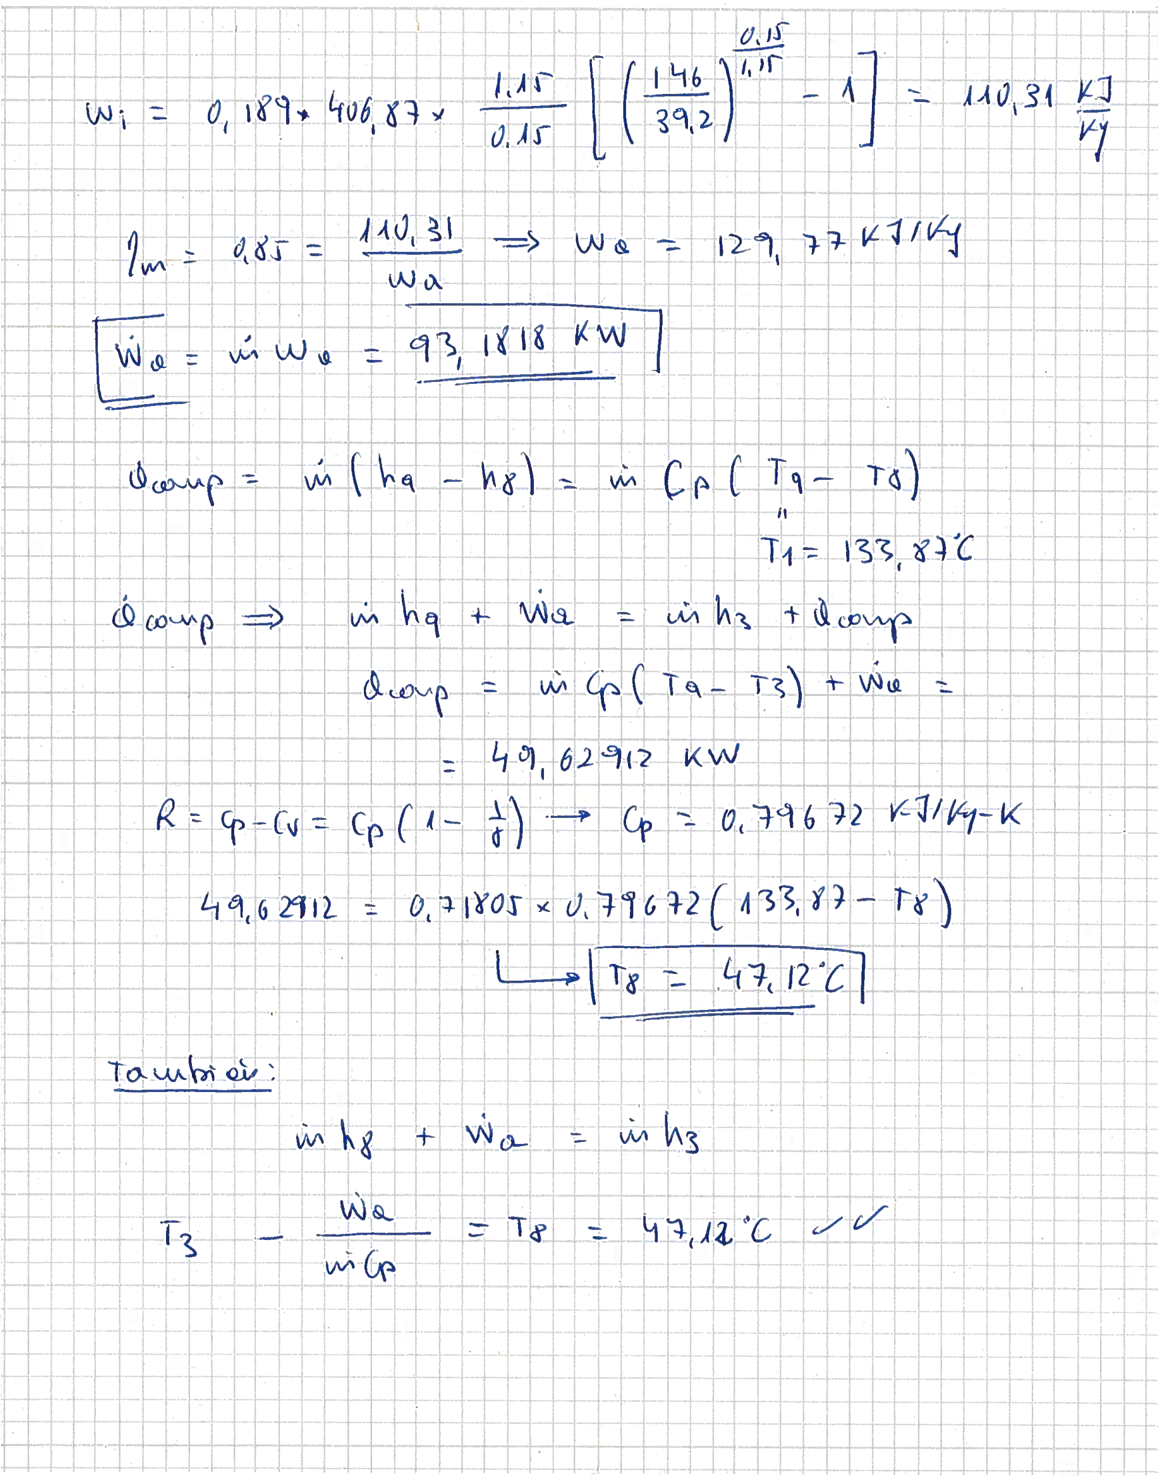 wi = 0,189 * 406,87 * 1.15/0.15 [(146/39,2)^(0.15/1.15) - 1] = 110,31 KJ/Kg
ηm = 0,85 = 110,31/wa ⇒ wa = 129,77 KJ/Kg
Ẇa = ṁ wa = 93,1818 KW
Qcomp = ṁ (h9 - h8) = ṁ Cp (T9 - T8)
"
T1 = 133,87°C
Q̇comp ⇒ ṁ h9 + Ẇa = ṁ h3 + Qcomp
Qcomp = ṁ Cp (T9 - T3) + Ẇa =
= 49,62912 KW
R = Cp - Cv = Cp (1 - 1/γ) → Cp = 0,79672 KJ/Kg-K
49,62912 = 0,71805 × 0,79672 (133,87 - T8)
T8 = 47,12°C
También:
ṁ h8 + Ẇa = ṁ h3
T3 - Ẇa/ṁCp = T8 = 47,12°C ✓✓